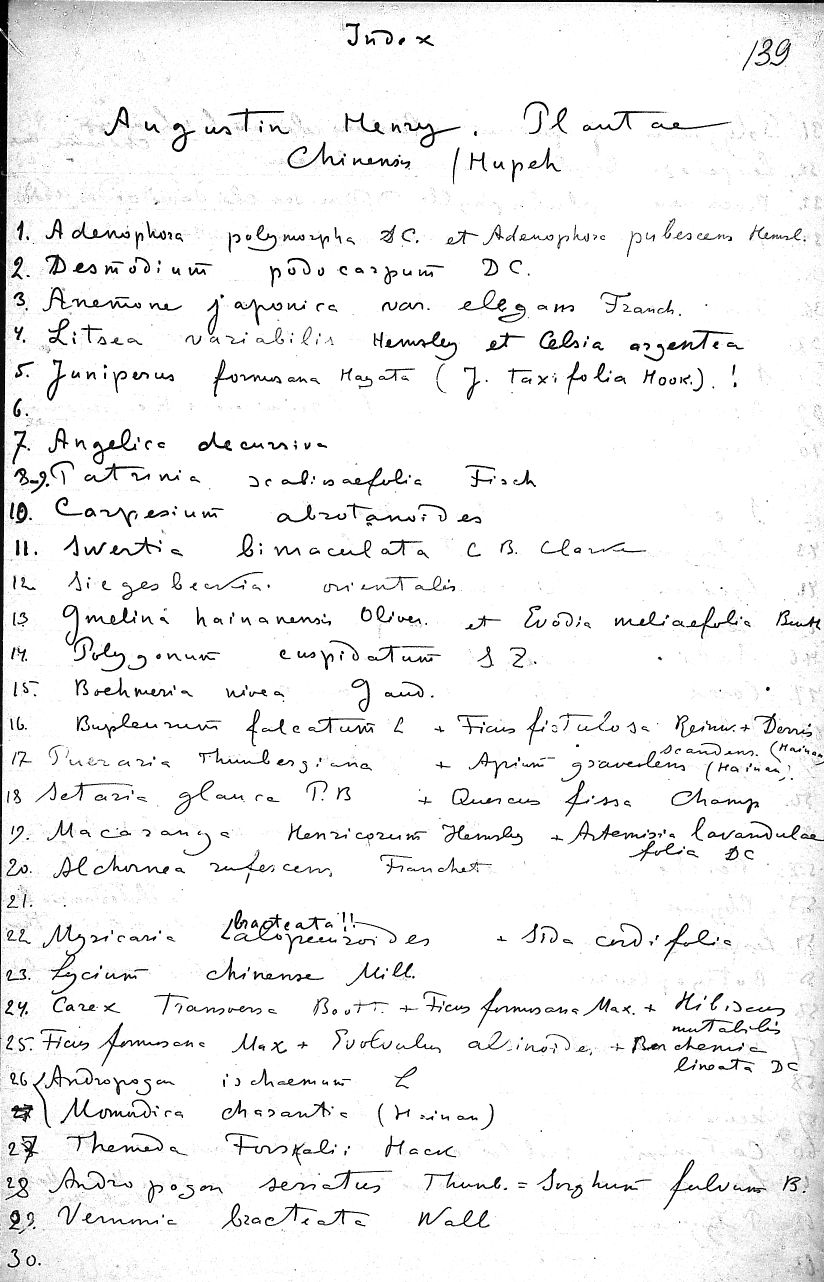 Index
139
Augustin Henry. Plantae
Chinensis / Hupeh
1. Adenophora polymorpha DC. et Adenophora pubescens Hemsl.
2. Desmodium podocarpum DC.
3. Anemone japonica var. elegans Franch.
4. Litsea variabilis Hemsley et Celsia argentea
5. Juniperus formosana Hayata (J. taxifolia Hook.) !
6.
7. Angelica decursiva
8-9. Patrinia scabiosaefolia Fisch
10. Carpesium abrotanoides
11. Swertia bimaculata C B. Clarke
12 Siegesbeckia orientalis
13 Gmelina hainanensis Oliver. et Evodia meliaefolia Benth
14. Polygonum cuspidatum S Z.
15. Boehmeria nivea Gaud.
16. Bupleurum falcatum L + Ficus fistulosa Reinw. + Derris
scandens. (Hainan)
17 Pueraria Thunbergiana + Apium graveolens (Hainan).
18 Setaria glauca P.B + Quercus fissa Champ
19. Macaranga Henricorum Hemsley + Artemisia lavandulae
folia DC
20. Alchornea rufescens Franchet
21.
bracteata!!
22 Myricaria alopecuroides + Sida cordifolia
23. Lycium chinense Mill.
24. Carex transversa Boott. + Ficus formosana Max. + Hibiscus
mutabilis
25. Ficus formosana Max + Evolvulus alsinoides + Berchemia
lineata DC
26 Andropogon ischaemum L
Momordica charantia (Hainan)
27 Themeda Forskalii Hack
28 Andropogon seriatus Thunb. = Sorghum fulvum B.
29. Vernonia bracteata Wall
30.